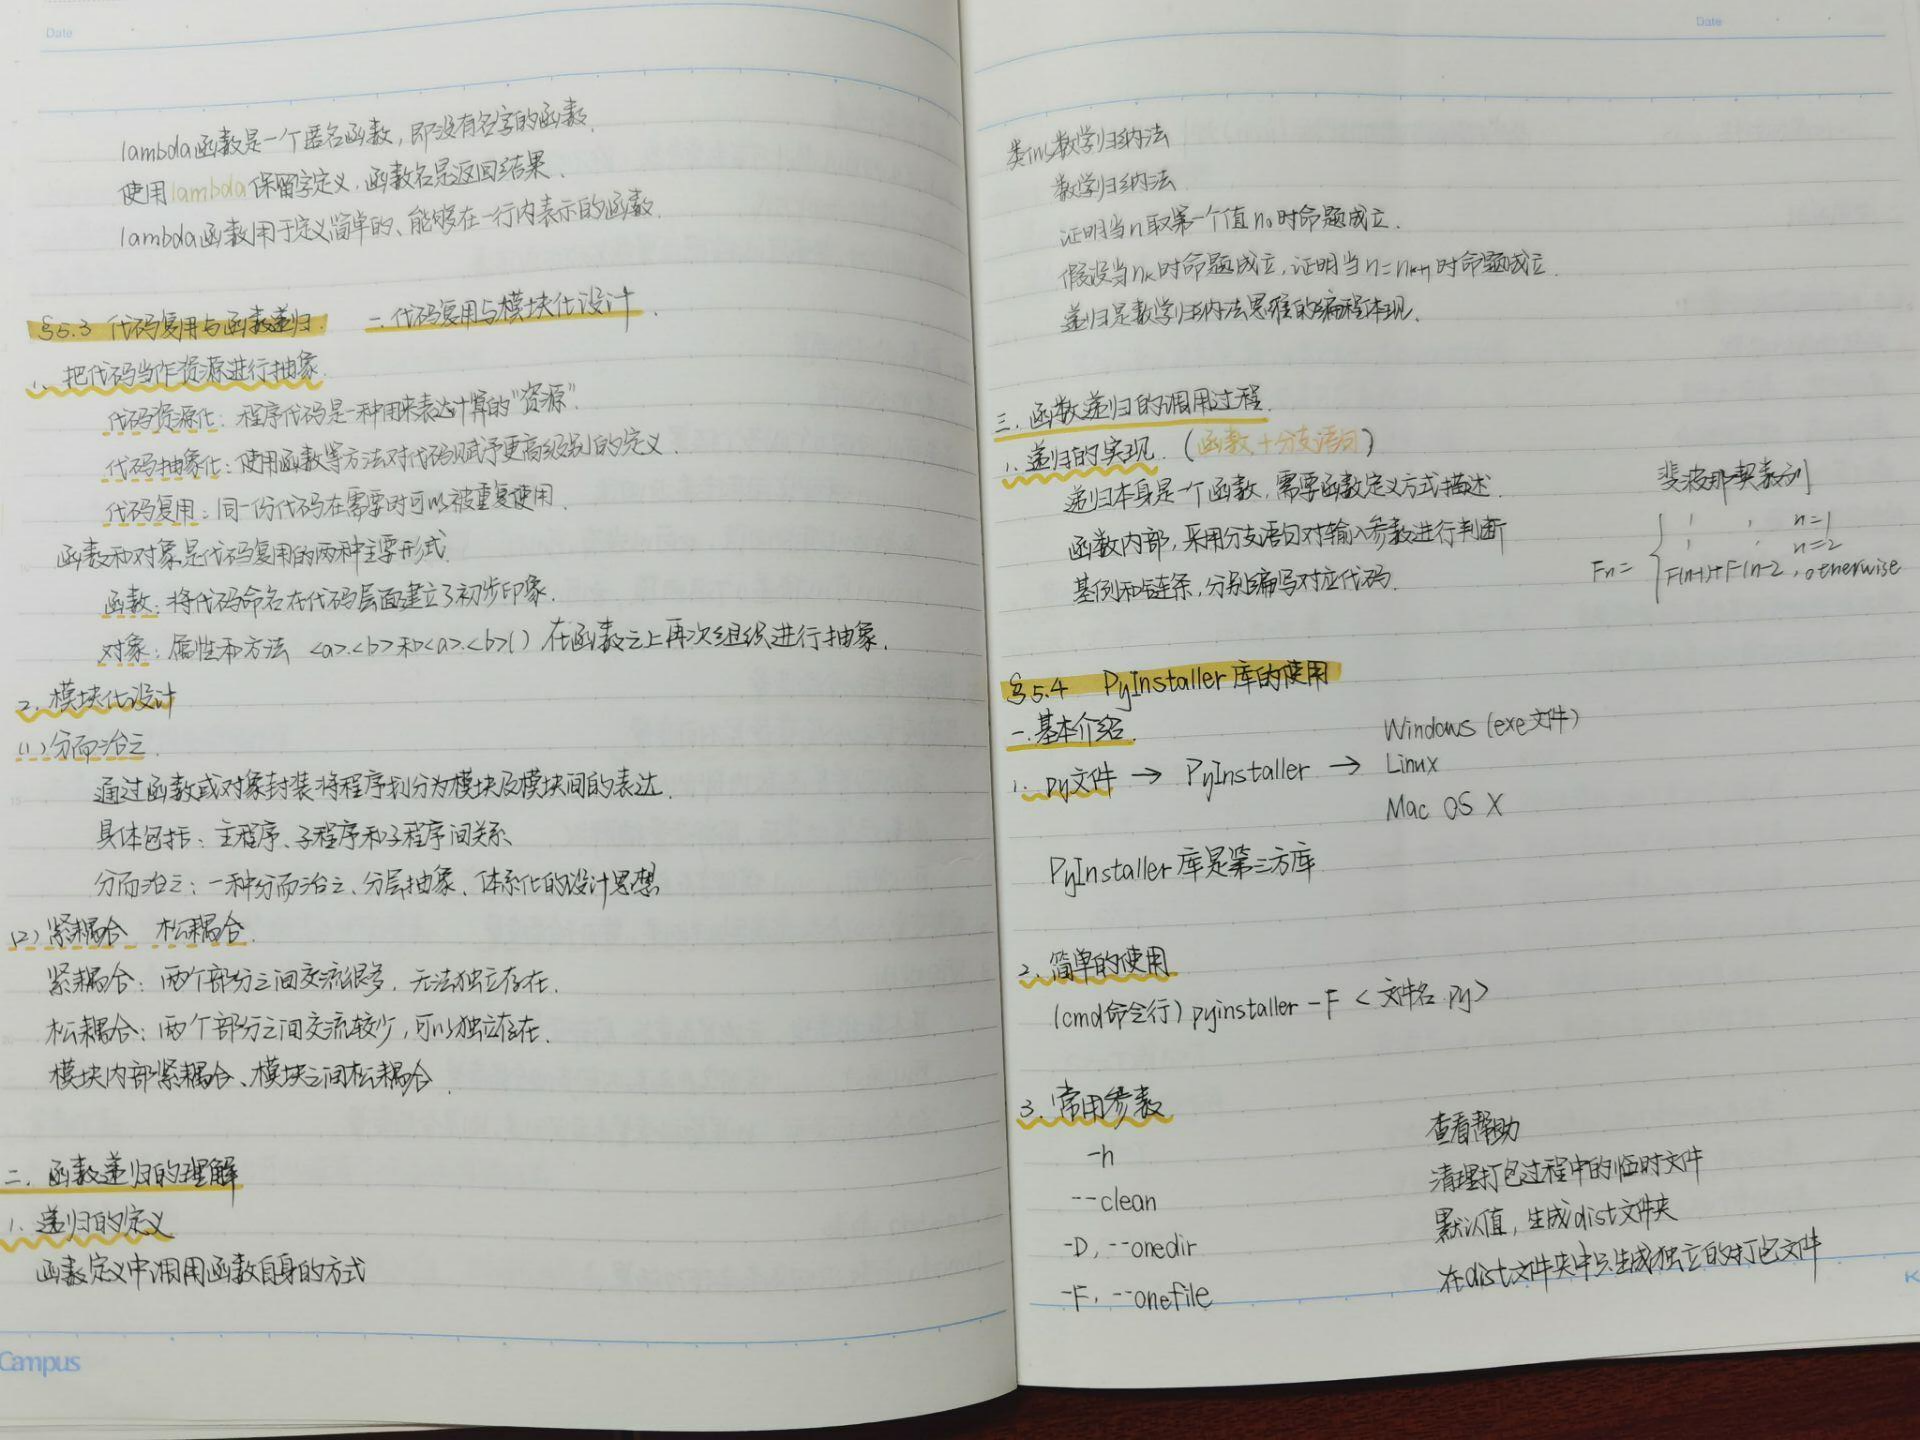 Date
lambda函数是一个匿名函数,即没有名字的函数.
使用lambda保留字定义,函数名是返回结果.
lambda函数用于定义简单的、能够在一行内表示的函数.
§5.3 代码复用与函数递归. 一.代码复用与模块化设计.
1、把代码当作资源进行抽象.
代码资源化:程序代码是一种用来表达计算的"资源".
代码抽象化:使用函数等方法对代码赋予更高级别的定义.
代码复用:同一份代码在需要时可以被重复使用.
函数和对象是代码复用的两种主要形式.
函数:将代码命名在代码层面建立了初步印象.
对象:属性和方法 <a>.<b>和<a>.<b>() 在函数之上再次组织进行抽象.
2.模块化设计
(1)分而治之.
通过函数或对象封装将程序划分为模块及模块间的表达.
具体包括:主程序、子程序和子程序间关系.
分而治之:一种分而治之、分层抽象、体系化的设计思想
(2)紧耦合 松耦合.
紧耦合:两个部分之间交流很多,无法独立存在.
松耦合:两个部分之间交流较少,可以独立存在.
模块内部紧耦合、模块之间松耦合.
二.函数递归的理解
1.递归的定义
函数定义中调用函数自身的方式
Campus
Date
数学归纳法
数学归纳法
证明当n取第一个值n₀时命题成立.
假设当nₖ时命题成立,证明当n=nₖ₊₁时命题成立.
递归是数学归纳法思维的编程体现.
三.函数递归的调用过程.
1.递归的实现.(函数+分支语句)
递归本身是一个函数,需要函数定义方式描述.
函数内部,采用分支语句对输入参数进行判断
基例和链条,分别编写对应代码.
斐波那契数列
1 , n=1
1 , n=2
Fn= F(n-1)+F(n-2 , otherwise
§5.4 PyInstaller库的使用
一.基本介绍.
1. py文件 → PyInstaller → Windows (exe文件)
Linux
Mac OS X
PyInstaller库是第三方库
2、简单的使用
(cmd命令行) pyinstaller -F <文件名.py>
3.常用参数
-h 查看帮助
--clean 清理打包过程中的临时文件
-D, --onedir 默认值,生成dist文件夹
-F, --onefile 在dist文件夹中只生成独立的打包文件